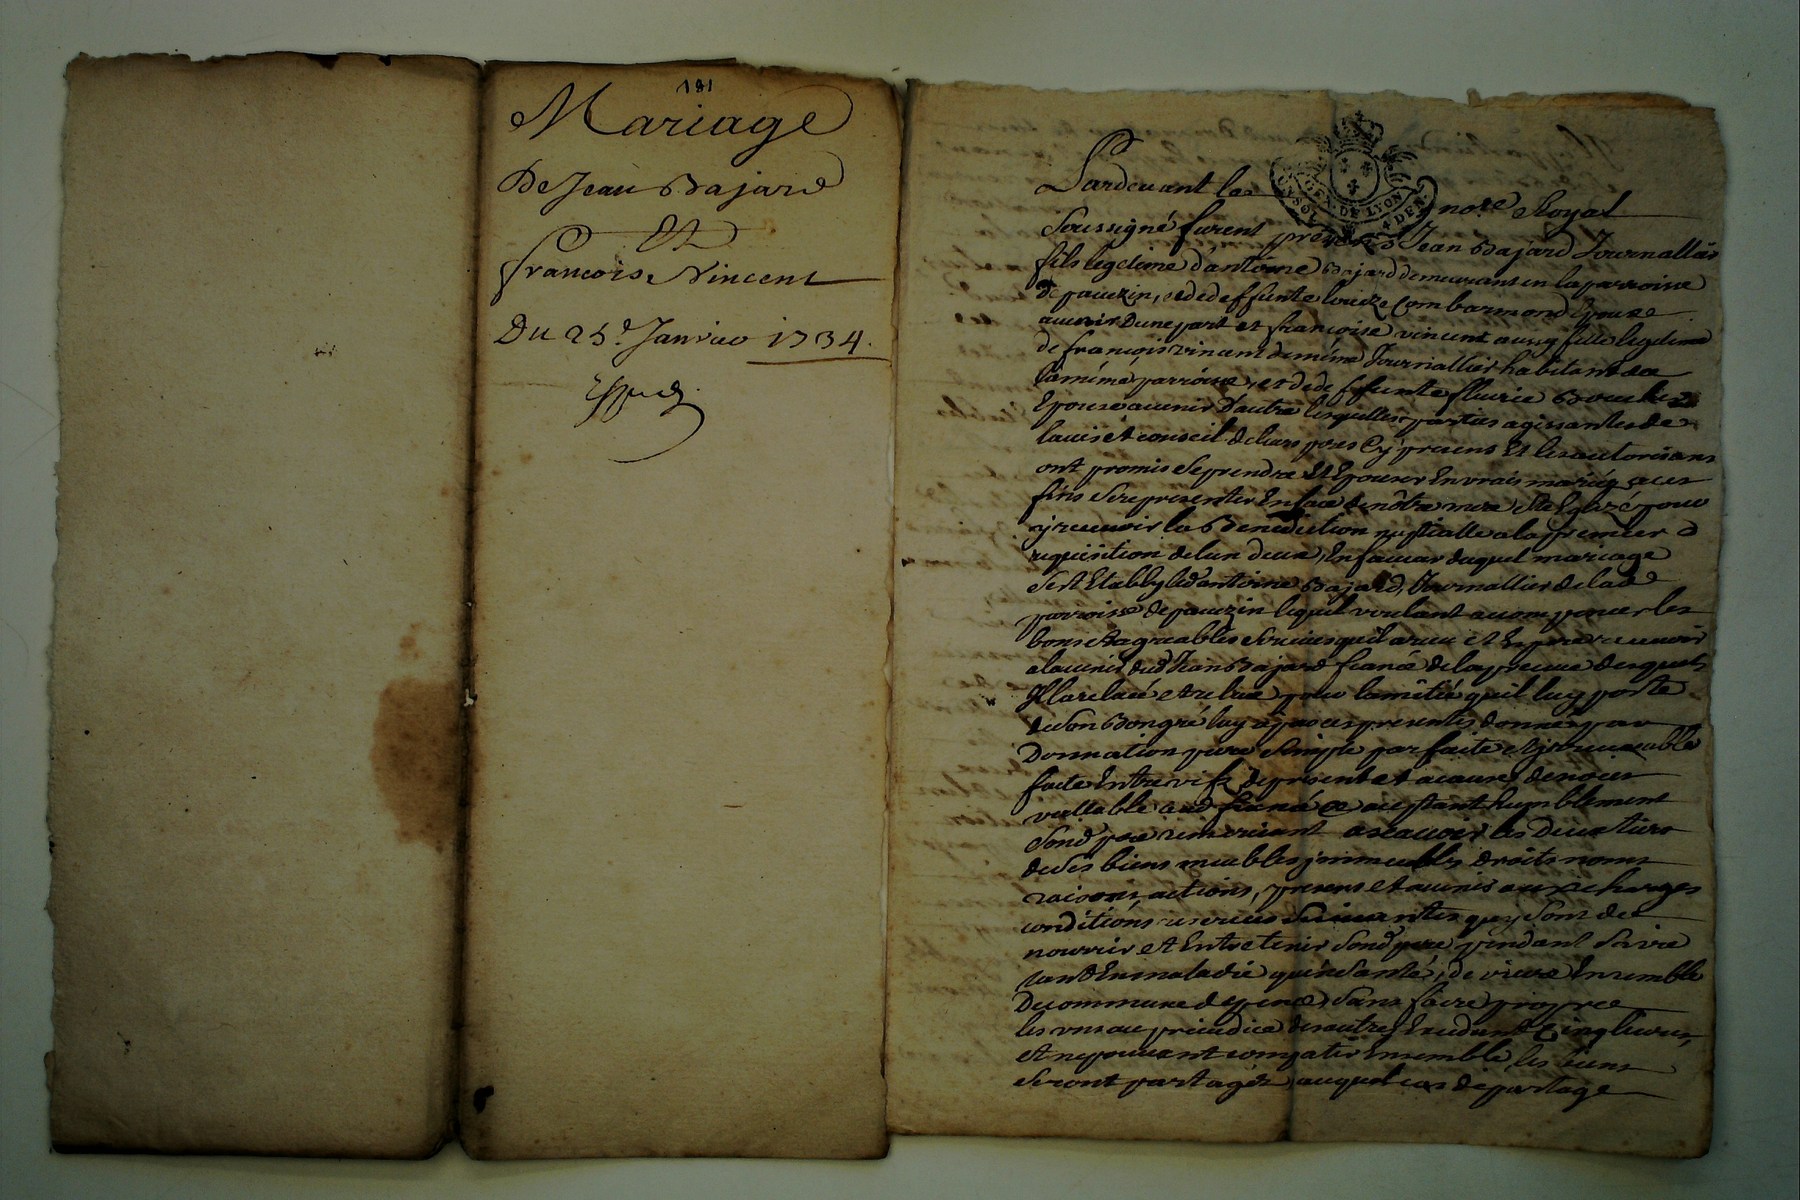 181
Mariage
De Jean Bajard
Et
francoise Vincent
Du 25e Janvier 1734.
Pardevant le no.re Royal
GEN. DE LYON
Soussigné furent presens Jean Bajard Journallier
fils legitime d'antoine Bajard demeurant en la parroisse
de pauezin, et de deffunte Combarmond Epoux
auenir Dune part et francoise vincent aussy fille legitime
de francois vincent de méme Journallier habitant de
la méme parroisse, et de deffunte fleurie
Epouse auenir D'autre lesquelles parties agissantes de
lauis et conseil de leurs peres Cy presens Et les autorisans
ont promis se prendre Et Epouser En vrais mariés a ces
fins se representer En face de nôtre mere Ste Eglize pour
y receuoir la Benediction nuptialle a la premiere
requisition de lun deux, En faueur duquel mariage
s'est Etably led antoine Bajard, Journallier de lad
parroisse de pauezin lequel voulant recompencer les
bons et agreables seruices quil a receu et Espere receuoir
a lauenir dud Jean Bajard fiancé de la preuue desquels
Il la releué et releue pour lamitié quil luy porte
de son Bon gré luy a par ces presentes donné par
Donnation pure simple parfaite et jrreuocable
faite Entre vifs de present et a cause de noces
vallable aud fiancé ce acceptant humblement
Sond pere remerciant ascauoir les Deux tiers
de ses biens meubles jmmeubles droits noms
raisons, actions, presens et auenir aux charges
conditions reserues suiuantes quy sont de
nourrir et Entretenir Sond pere pendant sa vie
tant En maladie quen santé, de viure Ensemble
De commune depence, sans faire propre
les vns au prejudice des autres Excedant Cinq liures,
et ne pouuant compatir Ensemble, les biens
seront partagés, auquel cas de partage